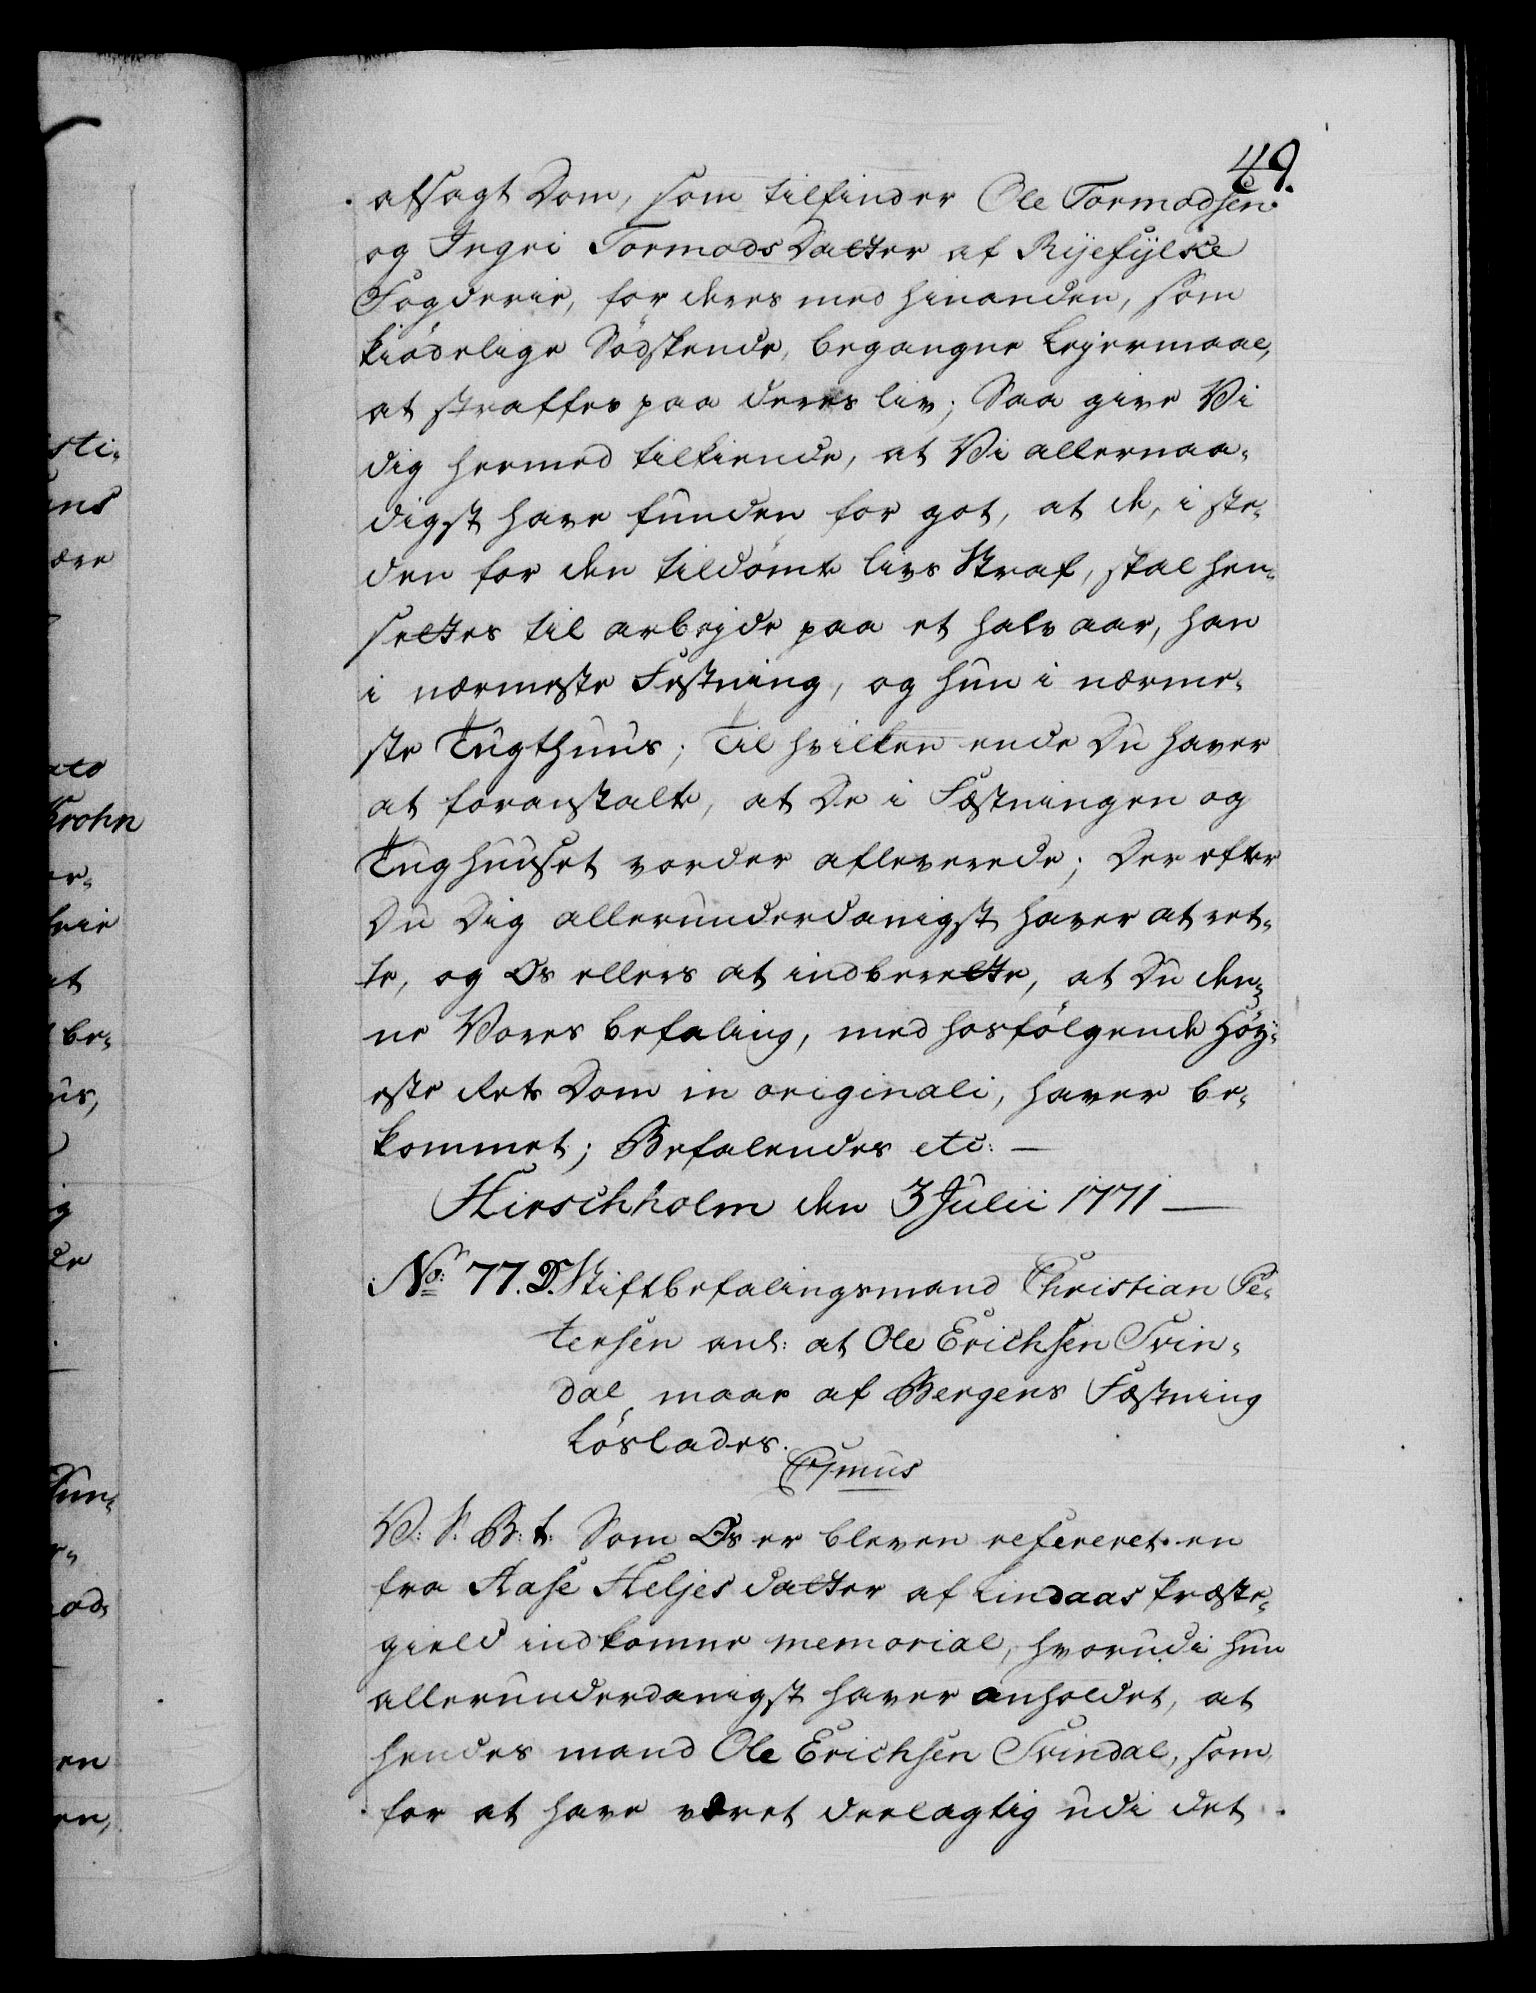 49.
afsagt Dom, som tilfinder Ole Tormodsen
og Ingri Tormods Datter af Ryefylke
Fogderie, for deres med hinanden, som
kiödelige Södskende, begangne Lejermaal,
at straffes paa deres liv; Saa give Vi
dig hermed tilkiende, at Vi allernaa-
digst have funden for got, at de, i ste-
den for den tildömte livs Straf, skal hen-
settes til arbejde paa et halv aar, han
i nærmeste Festning, og hun i nærme-
ste Tugthuus; Til hvilken ende Du haver
at foranstalte, at De i Fæstningen og
Tughuuset vorder afleverede; Der efter
Du Dig allerunderdanigst haver at ret-
te, og Os ellers at indberette, at Du den-
ne Vores befaling, med hosfölgende Höy-
este Rets Dom in originali, haver be-
kommet; Befalendes etc: —
Hirschholm den 3 Julii 1771 —
No: 77. D. Stiftbefalingsmand Christian Pe-
tersen anl: at Ole Erichsen Svin-
dal maae af Bergens Fæstning
löslades.
V: S: B: t: Som Os er bleven refereret en
fra Aase Heljes datter af Lindaas Præste-
gield indkomne memorial, hvorudi hun
allerunderdanigst haver anholdet, at
hendes mand Ole Erichsen Svindal, som
for at have været deelagtig udi det
sti-
ens
ære
ato
Krohn
er-
at
be-
us,
g
de
en
en,